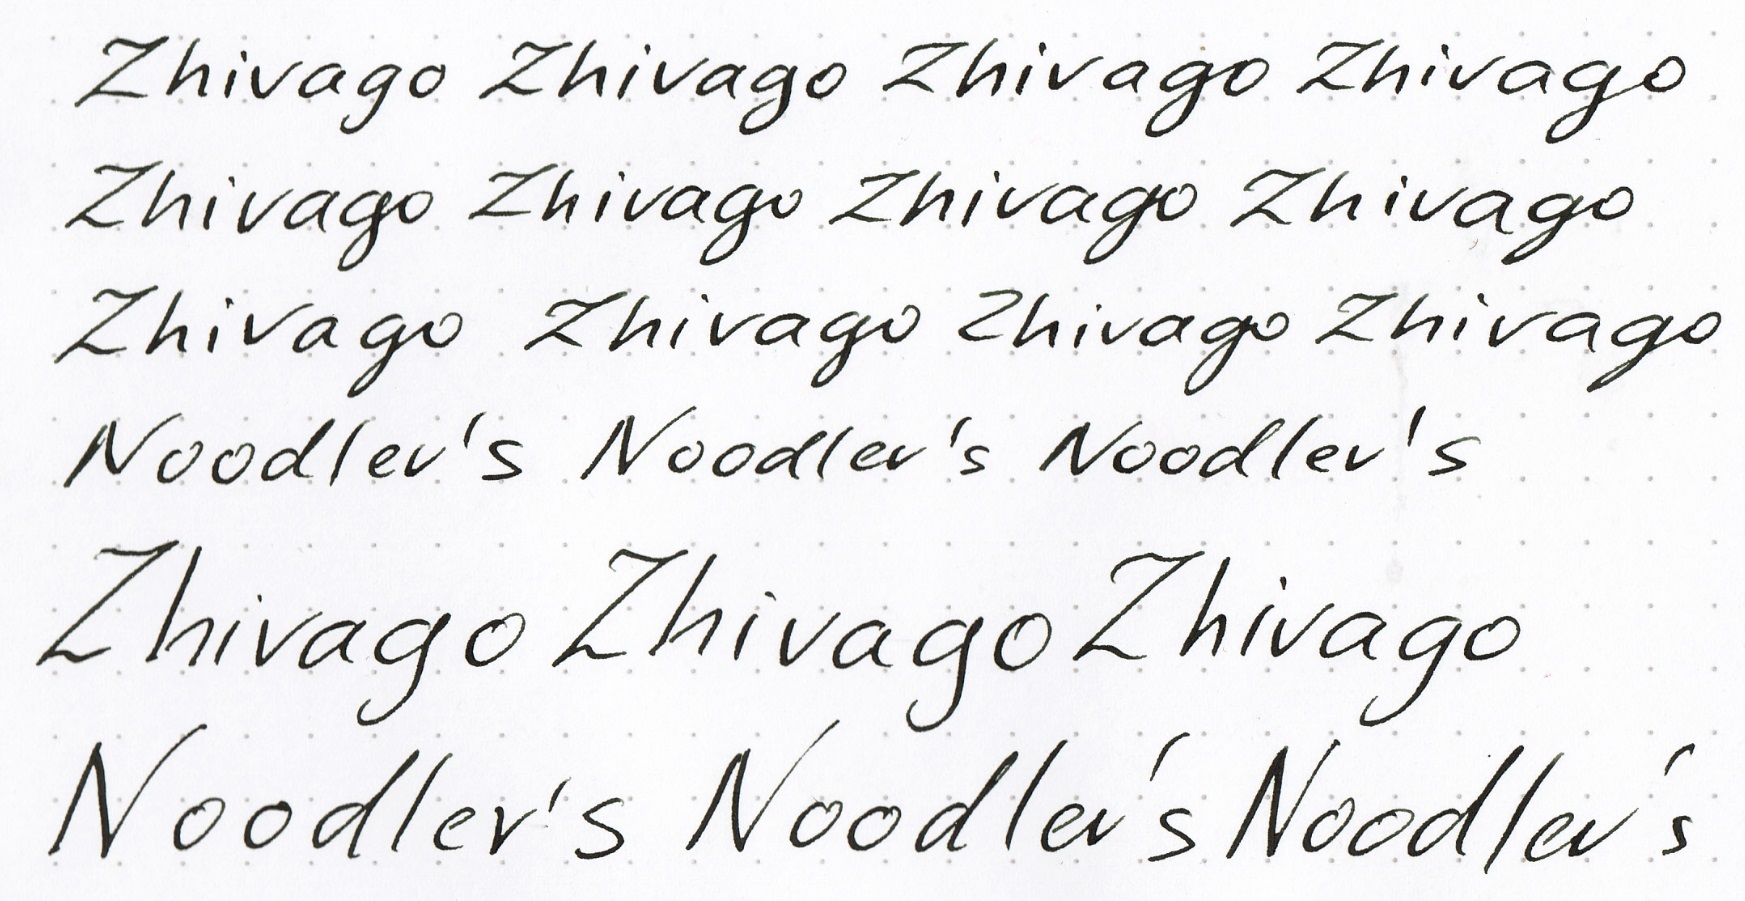 Zhivago Zhivago Zhivago Zhivago
Zhivago Zhivago Zhivago Zhivago
Zhivago Zhivago Zhivago Zhivago
Noodler's Noodler's Noodler's
Zhivago Zhivago Zhivago
Noodler's Noodler's Noodler's